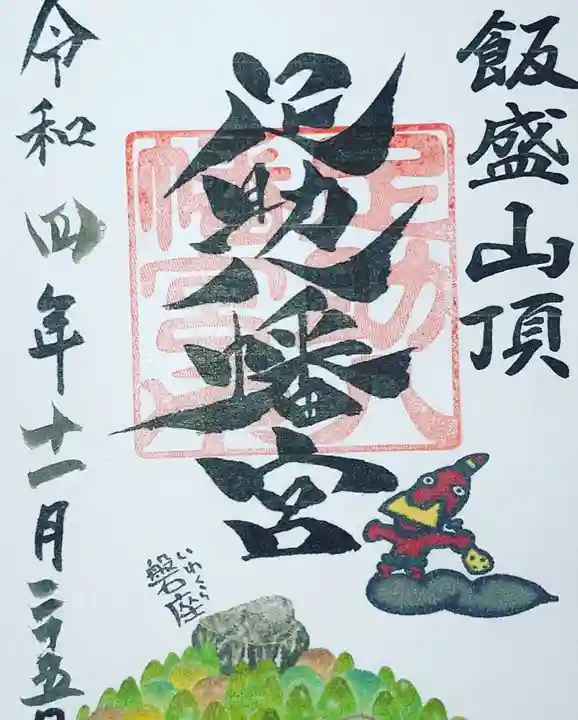 飯盛山頂
足助八幡宮
令和四年十一月二十五日
磐座
いわくら